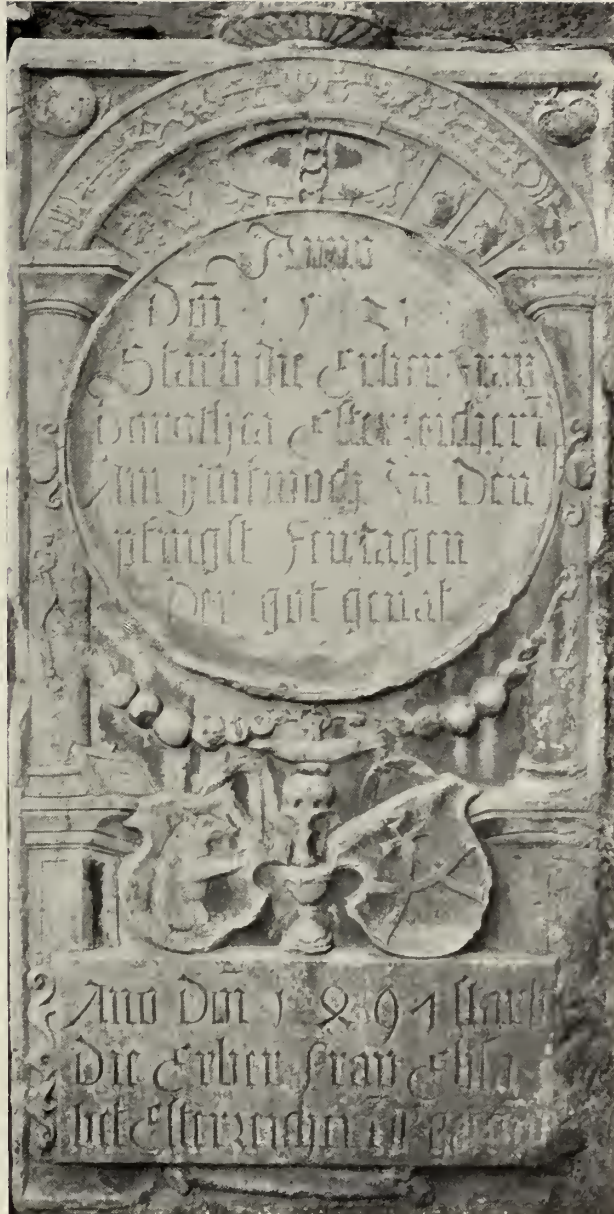 Anno
Dm̄ 1521
Starb die Erber Frau
Dorothea Esterreicherī
Am mitwoch In Den
pfingst Feiitagen
Der got genat
Ano Dm̄ 1 4 9 1 starb
Die Erber frau Elisa
bet Esterreicherī